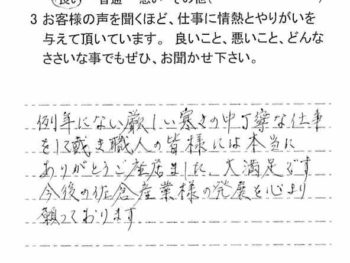 3 お客様の声を聞くほど、仕事に情熱とやりがいを
与えて頂いています。 良いこと、悪いこと、どんな
ささいな事でもぜひ、お聞かせ下さい。
例年にない厳しい寒さの中丁寧な仕事
をして戴き職人の皆様には本当に
ありがとうご座居ました、大満足です
今後の佐倉産業様の発展を心より
願っております